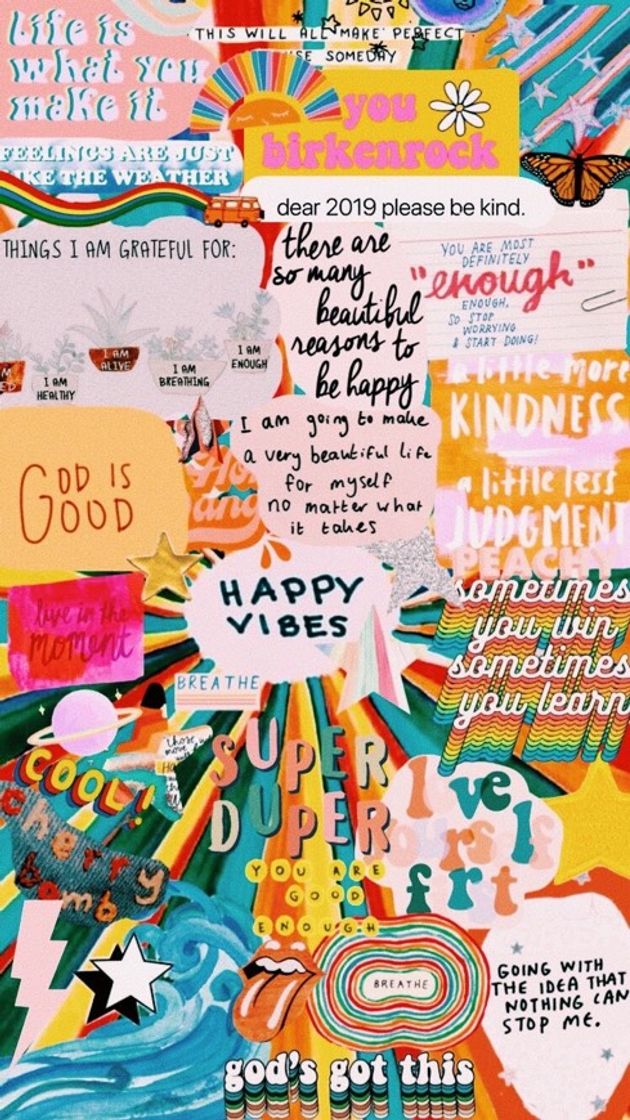 life is
what you
make it
THIS WILL ALL MAKE PERFECT
SE SOMEDAY
you
birkenrock
FEELINGS ARE JUST
IKE THE WEATHER
dear 2019 please be kind.
THINGS I AM GRATEFUL FOR:
I AM
ALIVE
I AM
HEALTHY
I AM
BREATHING
I AM
ENOUGH
there are
so many
beautiful
reasons to
be happy
YOU ARE MOST
DEFINITELY
"enough"
ENOUGH,
SO STOP
WORRYING
& START DOING!
a little more
KINDNESS
a little less
JUDGMENT
PEACHY
GOD IS
GOOD
I am going to make
a very beautiful life
for myself
no matter what
it takes
and
HAPPY
VIBES
live in the
moment
BREATHE
sometimes
you win
sometimes
you learn
COOL!
cherry
bomb
SUPER
DUPER
love
yourself
frt
YOU ARE
GOOD
ENOUGH
BREATHE
GOING WITH
THE IDEA THAT
NOTHING CAN
STOP ME.
god's got this